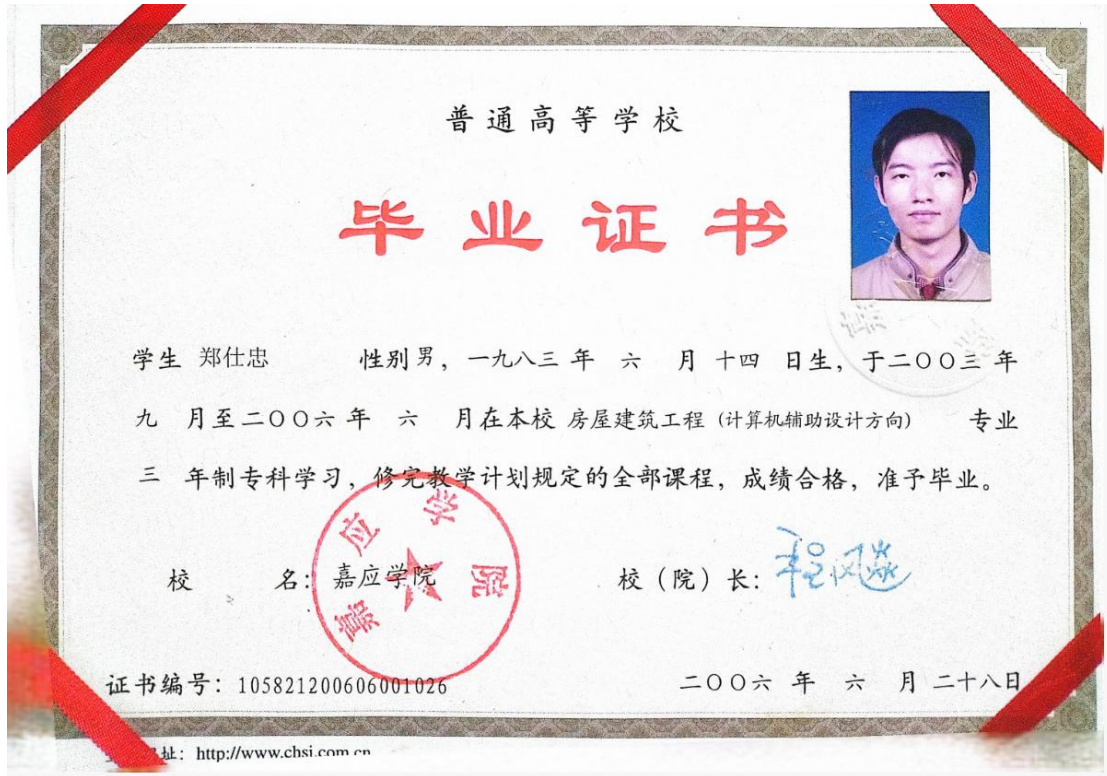 普通高等学校
毕业证书
学生 郑仕忠 性别 男，一九八三 年 六 月 十四 日生，于二〇〇三 年
九 月至二〇〇六 年 六 月在本校 房屋建筑工程 (计算机辅助设计方向) 专业
三 年制专科学习，修完教学计划规定的全部课程，成绩合格，准予毕业。
校 名：嘉应学院 校（院）长：程飚
嘉应学院
证书编号：105821200606001026 二〇〇六 年 六 月 二十八日
址：http://www.chsi.com.cn